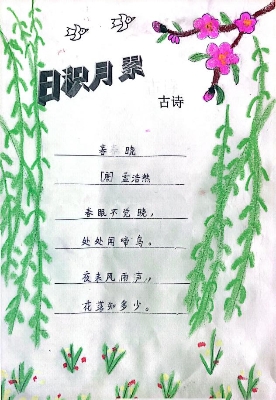 日积月累
古诗
春 晓
[唐] 孟浩然
春眠不觉晓，
处处闻啼鸟。
夜来风雨声，
花落知多少。